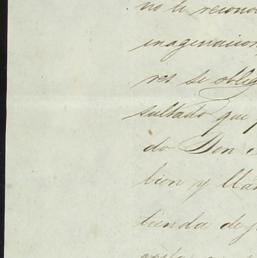 no le recono
imaginacion
res se oblig
sultado que
do Don
bien y llan
tienda de